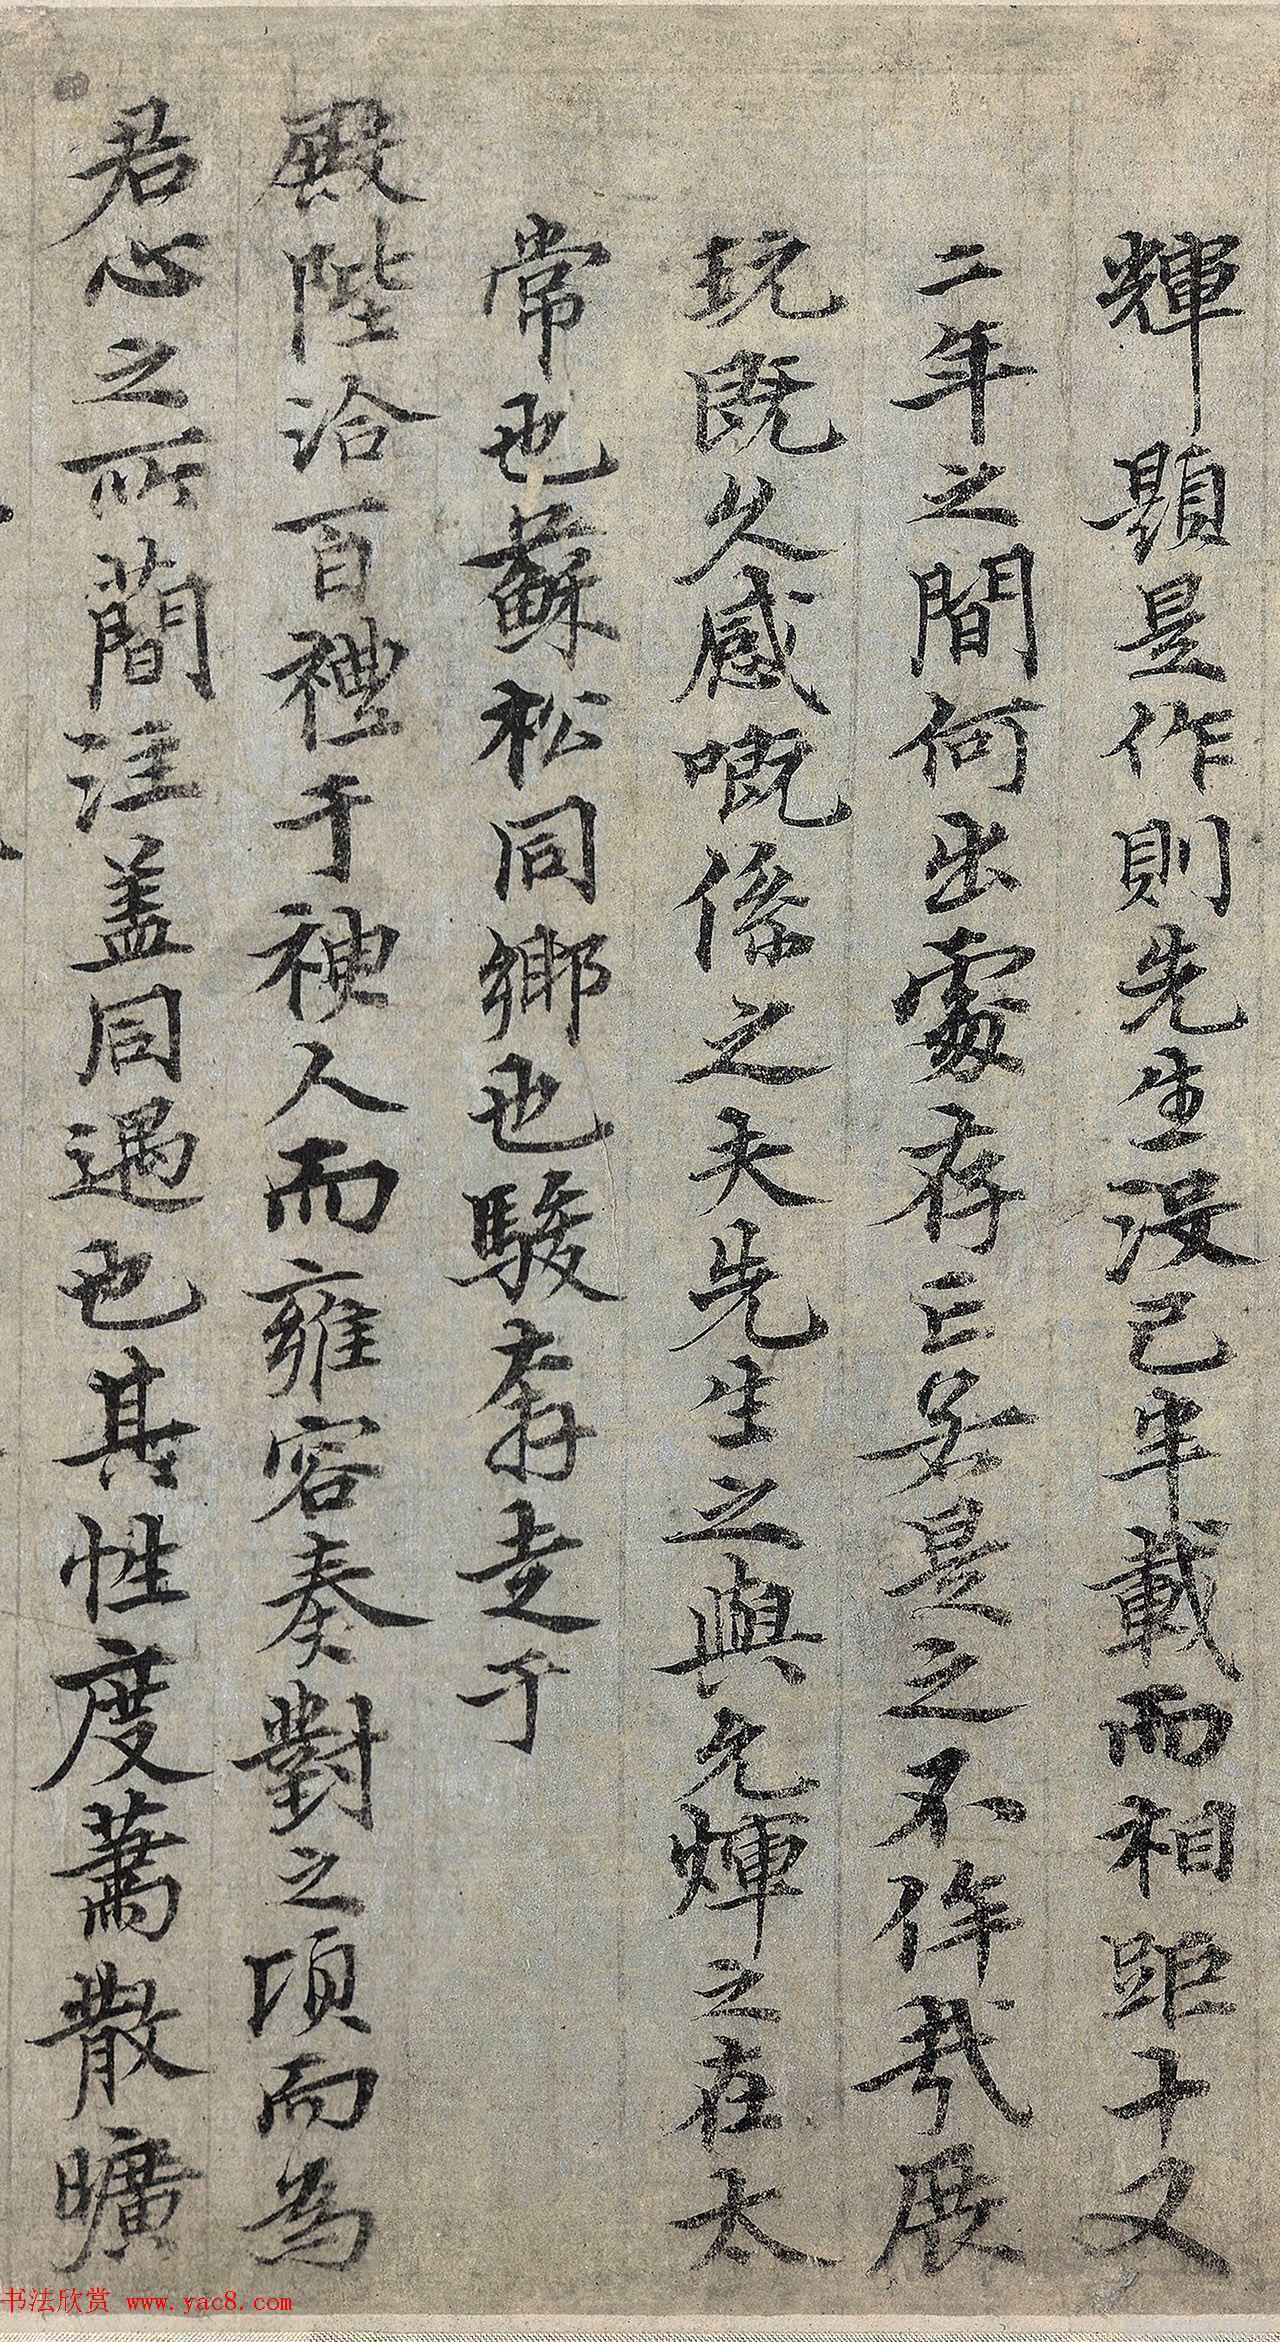 輝題是作則先生没已半載而相距十又
二年之間何出處存亡若是之不侔哉展
玩既久感嘅係之夫先生之與允煇之在太
常也蘇松同鄉也駿奔走于
殿陛洽百禮于神人而雍容奏對之頃而為
君心之所蕳注盖同遇也其性度蕭散曠
书法欣赏 www.yac8.com